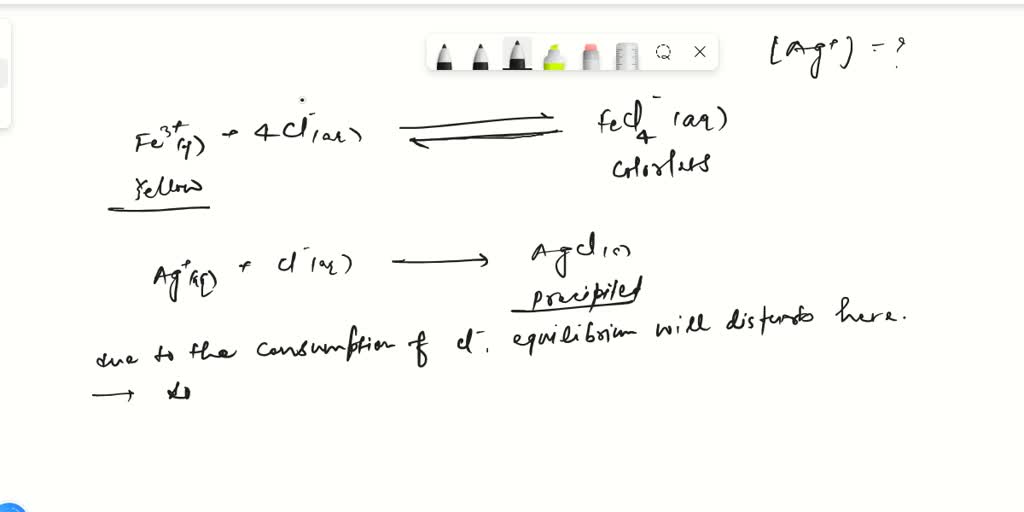 [Ag⁺] = ?
Fe³⁺(aq) + 4Cl⁻(aq) ⇌ FeCl₄⁻(aq)
Yellow colorless
Ag⁺(aq) + Cl⁻(aq) → AgCl(s)
precipited
due to the consumption of Cl⁻, equilibrium will disturb here.
→